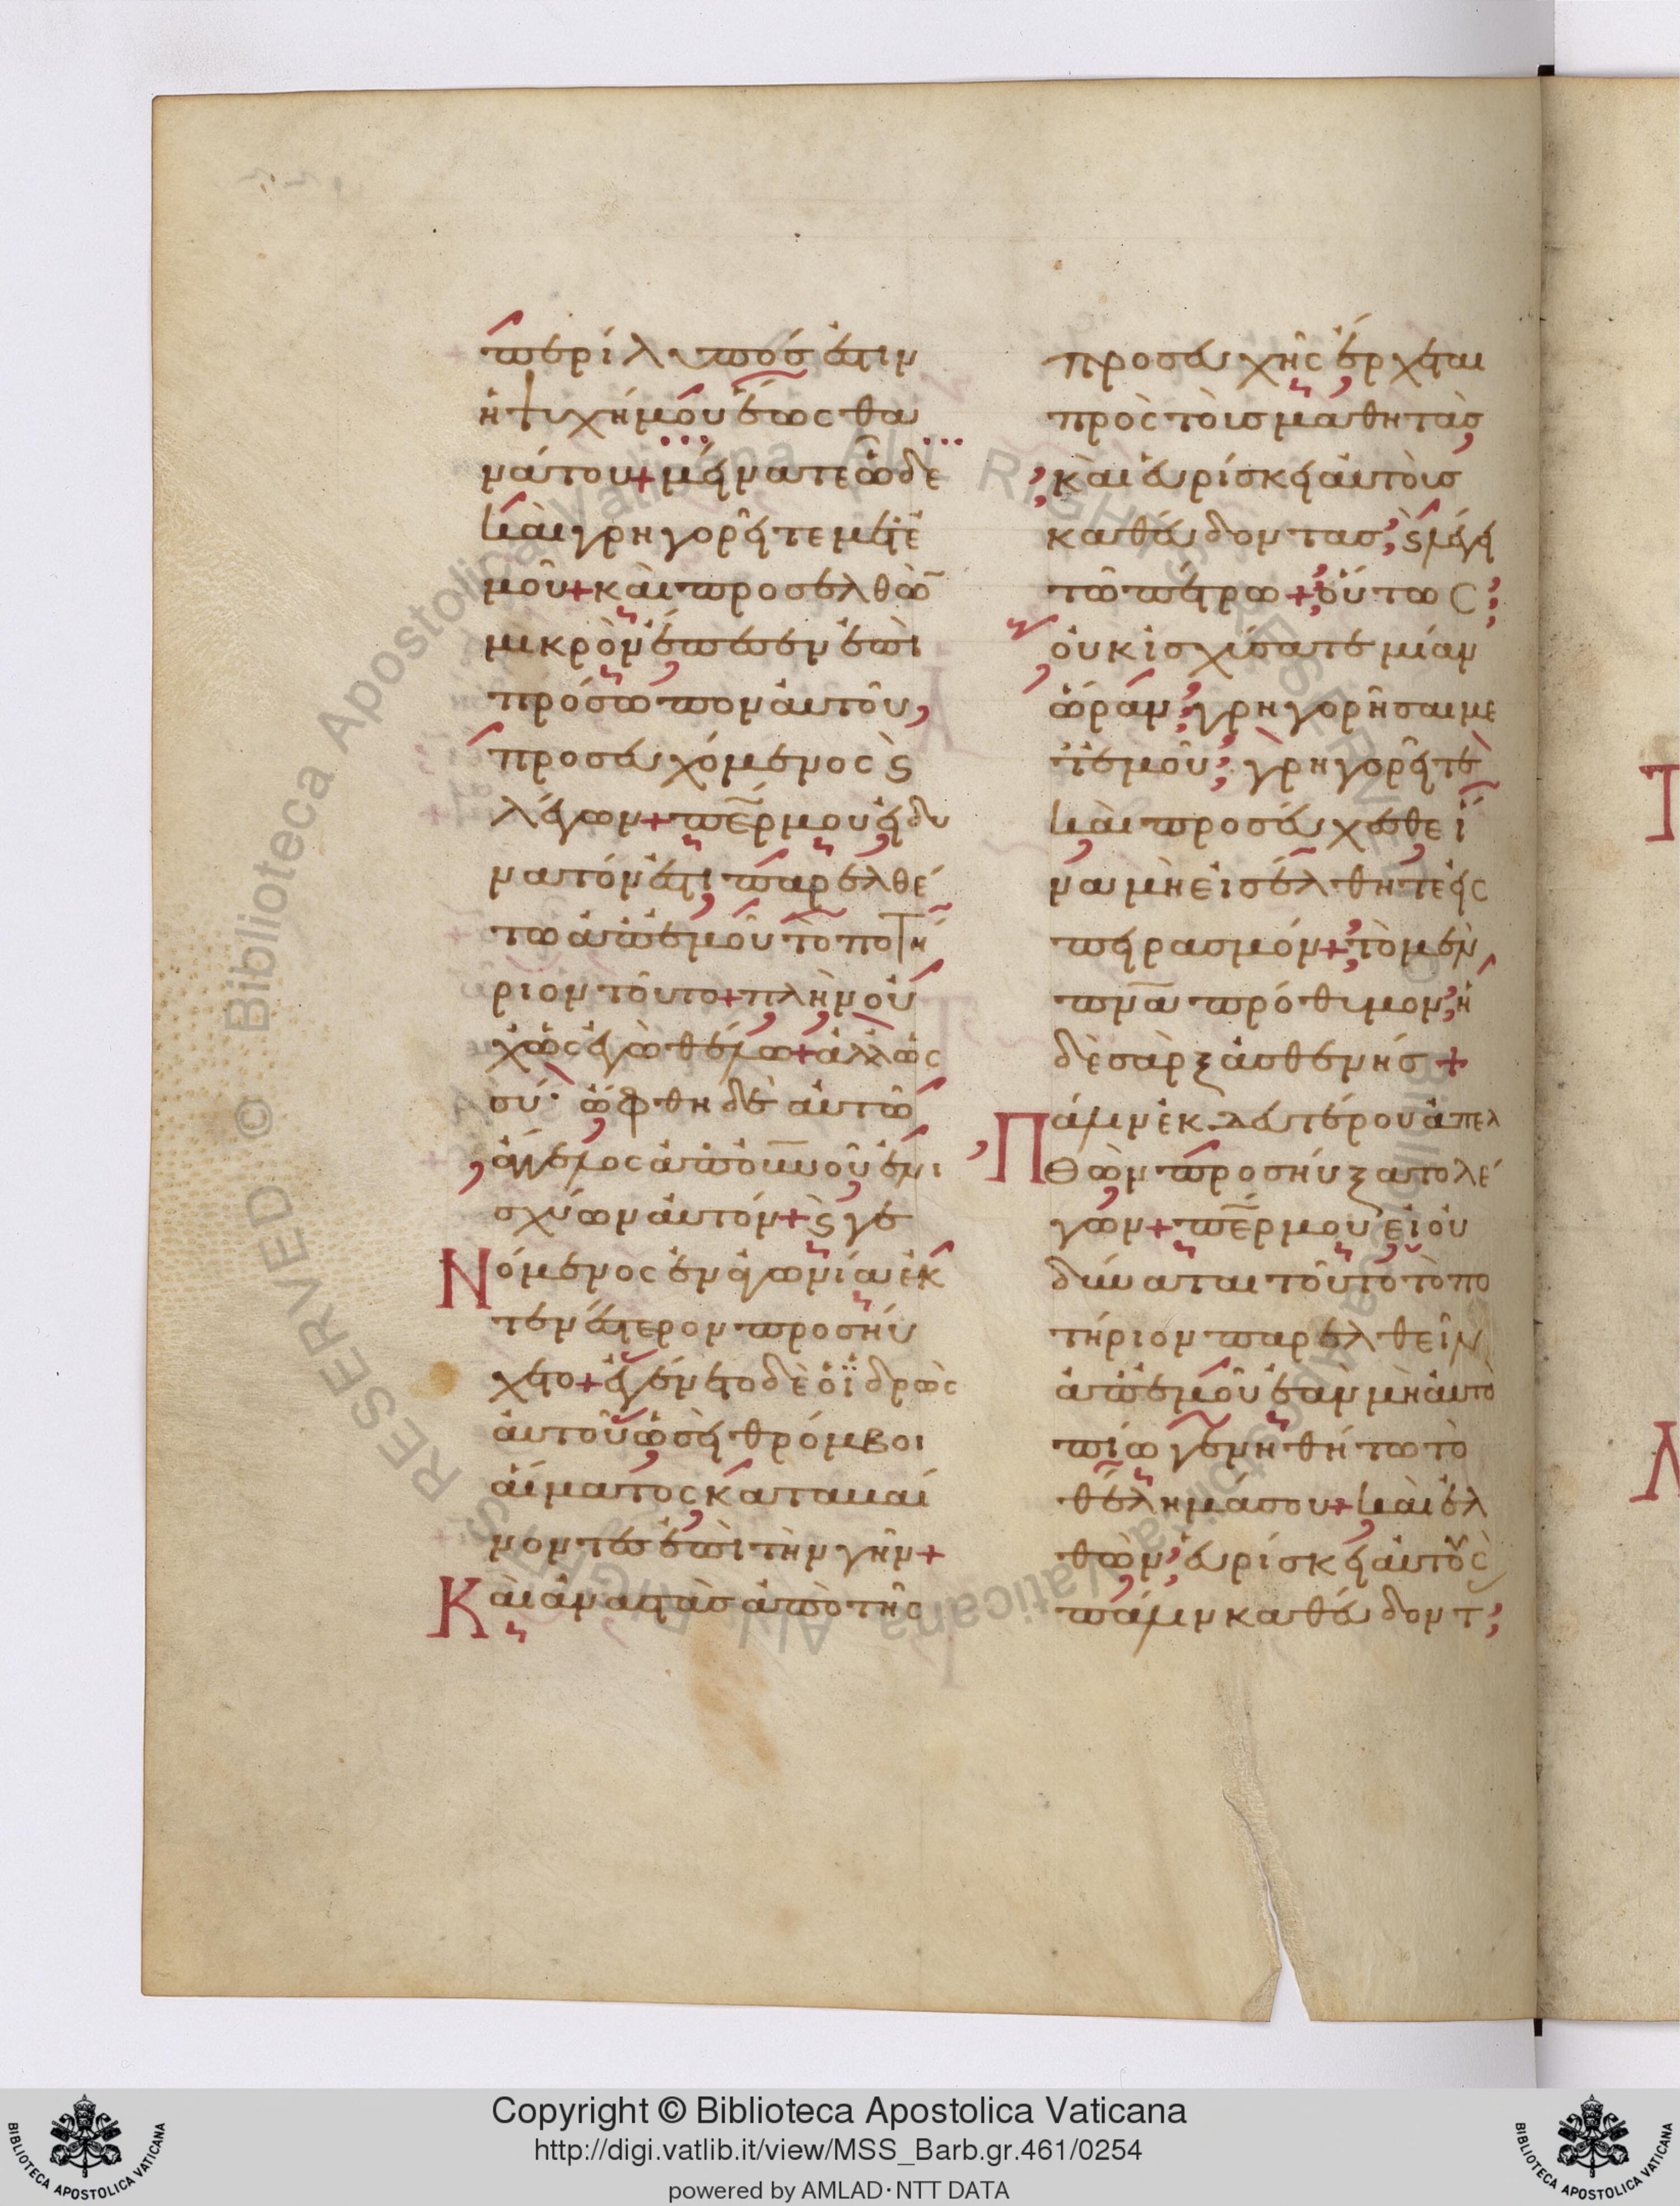 περίλυπός ἐστιν
ἡ ψυχή μου ἕως θα
νάτου + μείνατε ὧδε
καὶ γρηγορεῖτε μετ ἐ
μοῦ + καὶ προσελθὼ̅
μικρὸν ἔπεσεν ἐπὶ
πρόσωπον αὐτοῦ,
προσευχόμενος ϛ̀
λέγων + πε̅ρ μου εἰ δυ
νατόν ἐστι παρελθέ
τω ἀπ ἐμοῦ τὸ ποτή
ριον τοῦτο + πλὴν οὐ
χ ὡς ἐγὼ θέλω + ἀλλ ὡς
σύ· ὤφθη δὲ αὐτῶ
ἄγγελος ἀπ ου̅νου ἐνι
σχύων αὐτόν + ϛ̀ γε
Νόμενος ἐν ἀγωνία ἐκ
τενέστερον προσηύ
χετο + ἐγένετο δὲ ὁ ϊδρὼς
αὐτοῦ ὡσεὶ θρόμβοι
αἵματος καταβαί
νοντες ἐπὶ τὴν γῆν +
Καὶ ἀναστὰς ἀπὸ τῆς
προσευχῆς ἔρχεται
πρὸς τοὺς μαθητὰς
καὶ εὑρίσκει αὐτοὺς
καθεύδοντας, ϛ̀ λέγει
τῶ πέτρω + οὕτως
οὐκ ἰσχύσατε μίαν
ὥραν γρηγορῆσαι με
τ ἐμοῦ; γρηγορεῖτε
καὶ προσεύχεσθε ἵ
να μὴ εἰσέλθητε εἰς
πειρασμόν + τὸ μὲν
πνα̅ πρόθυμον, ἡ
δὲ σὰρξ ἀσθενής +
Πάλιν ἐκ δευτέρου ἀπελ
θὼν προσηύξατο λέ
γων + πε̅ρ μου εἰ οὐ
δύναται τοῦτο τὸ πο
τήριον παρελθεῖν
ἀπ ἐμοῦ ἐὰν μὴ αὐτὸ
πίω γενηθήτω τὸ
θέλημά σου + καὶ ἐλ
θὼν, εὑρίσκει αὐτοὺς
πάλιν καθεύδοντ
Copyright © Biblioteca Apostolica Vaticana
http://digi.vatlib.it/view/MSS_Barb.gr.461/0254
powered by AMLAD·NTT DATA